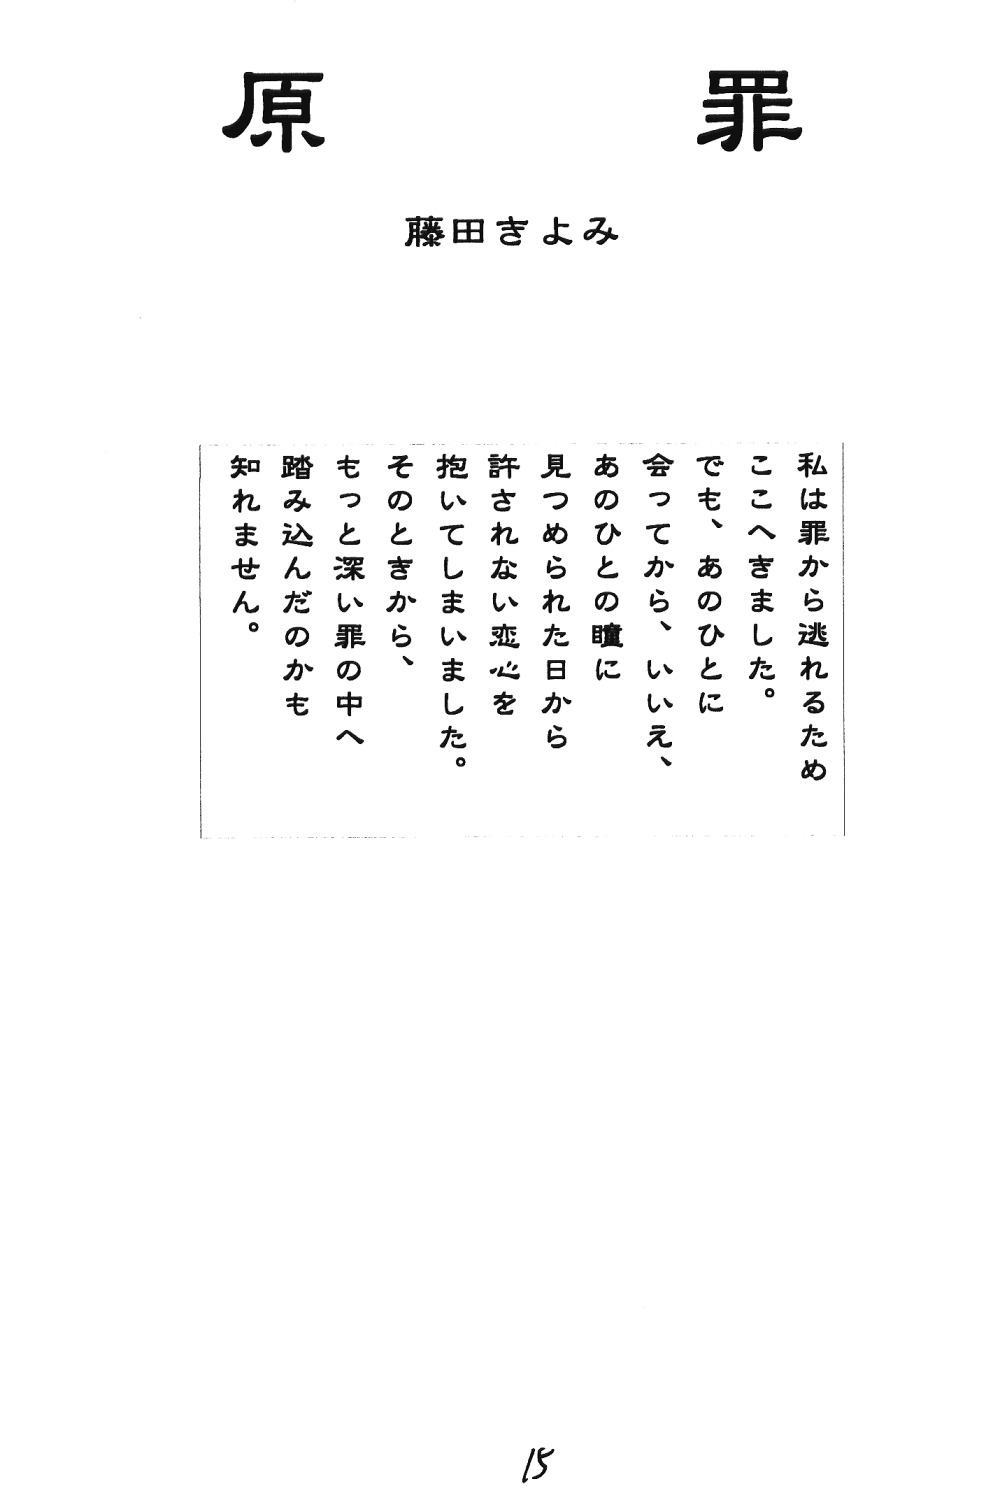 原 罪
藤田きよみ
私は罪から逃れるため
ここへきました。
でも、あのひとに
会ってから、いいえ、
あのひとの瞳に
見つめられた日から
許されない恋心を
抱いてしまいました。
そのときから、
もっと深い罪の中へ
踏み込んだのかも
知れません。
15